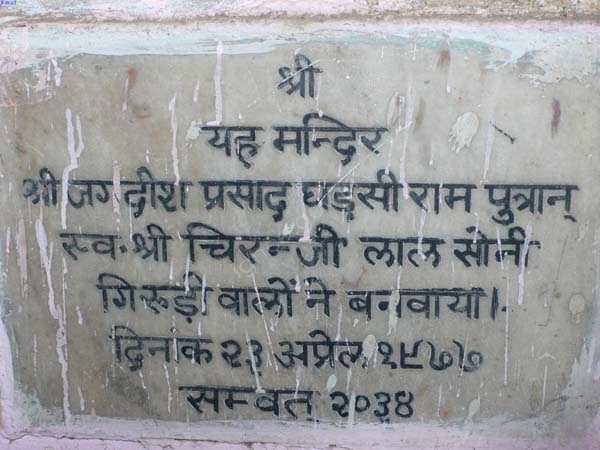 श्री
यह मन्दिर
श्री जगदीश प्रसाद घड़सी राम पुत्रान्
स्व. श्री चिरन्जी लाल सोनी
गिरुड़ी वालों ने बनवाया।
दिनांक २३ अप्रेल १९७७
सम्वत २०३४